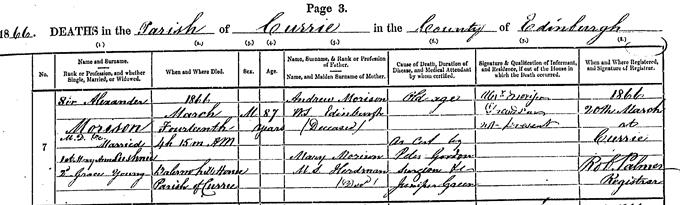 Page 3.
1866. DEATHS in the Parish of Currie in the County of Edinburgh
(1.) (2.) (3.) (4.) (5.) (6.) (7.) (8.)
No.
Name and Surname.
Rank or Profession, and whether Single, Married, or Widowed.
When and Where Died.
Sex.
Age.
Name, Surname, & Rank or Profession of Father.
Name, and Maiden Surname of Mother.
Cause of Death, Duration of Disease, and Medical Attendant by whom certified.
Signature & Qualification of Informant, and Residence, if out of the House in which the Death occurred.
When and Where Registered, and Signature of Registrar.
7
Sir Alexander
Morison
M.D.
Married
1st Mary Ann Cushnie
2d Grace Young
1866
March
Fourteenth
4h 15m AM
Balerno hill House
Parish of Currie
M
87
years
Andrew Morison
WS Edinburgh
(Deceased)
Mary Morison
M.S. Herdman
Old age
As Cert by
Peter Gordon
Surgeon
Juniper Green
Alexr Morison
not present
1866
20th March
at
Currie
Robt Palmer
Registrar